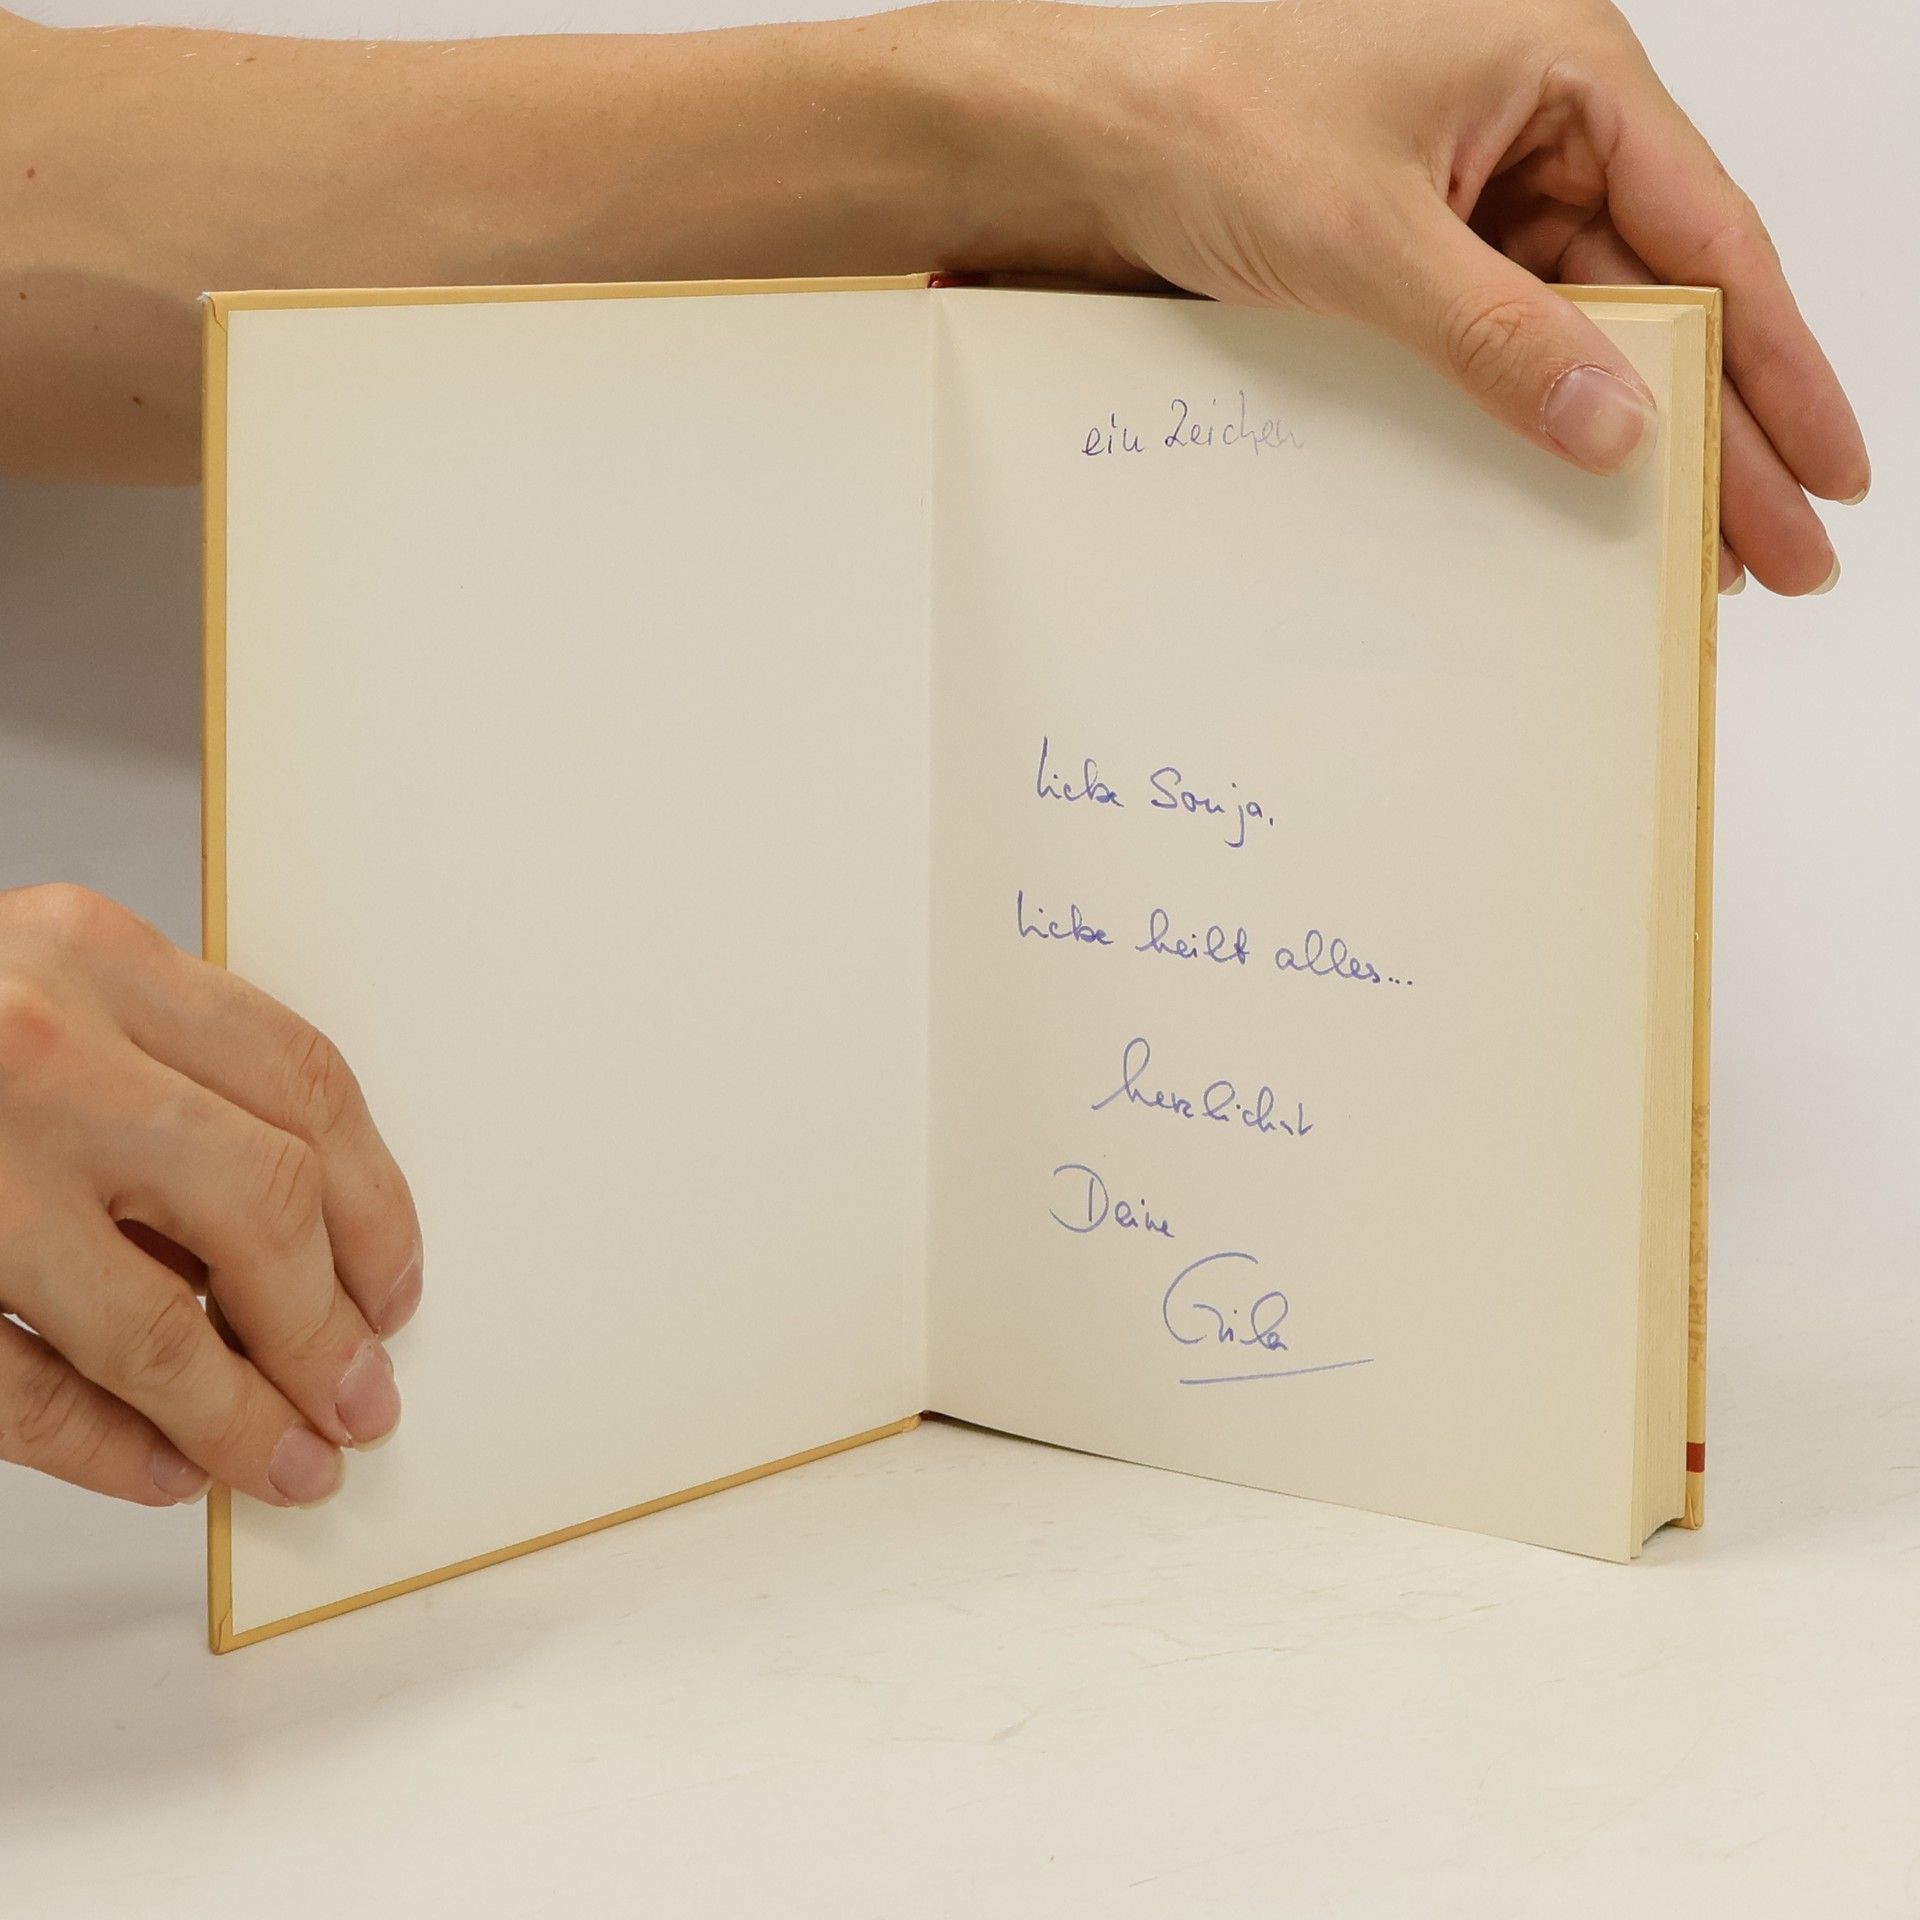 ein Zeichen
Liebe Sonja,
Liebe heilt alles...
herzlichst
Deine
Gila